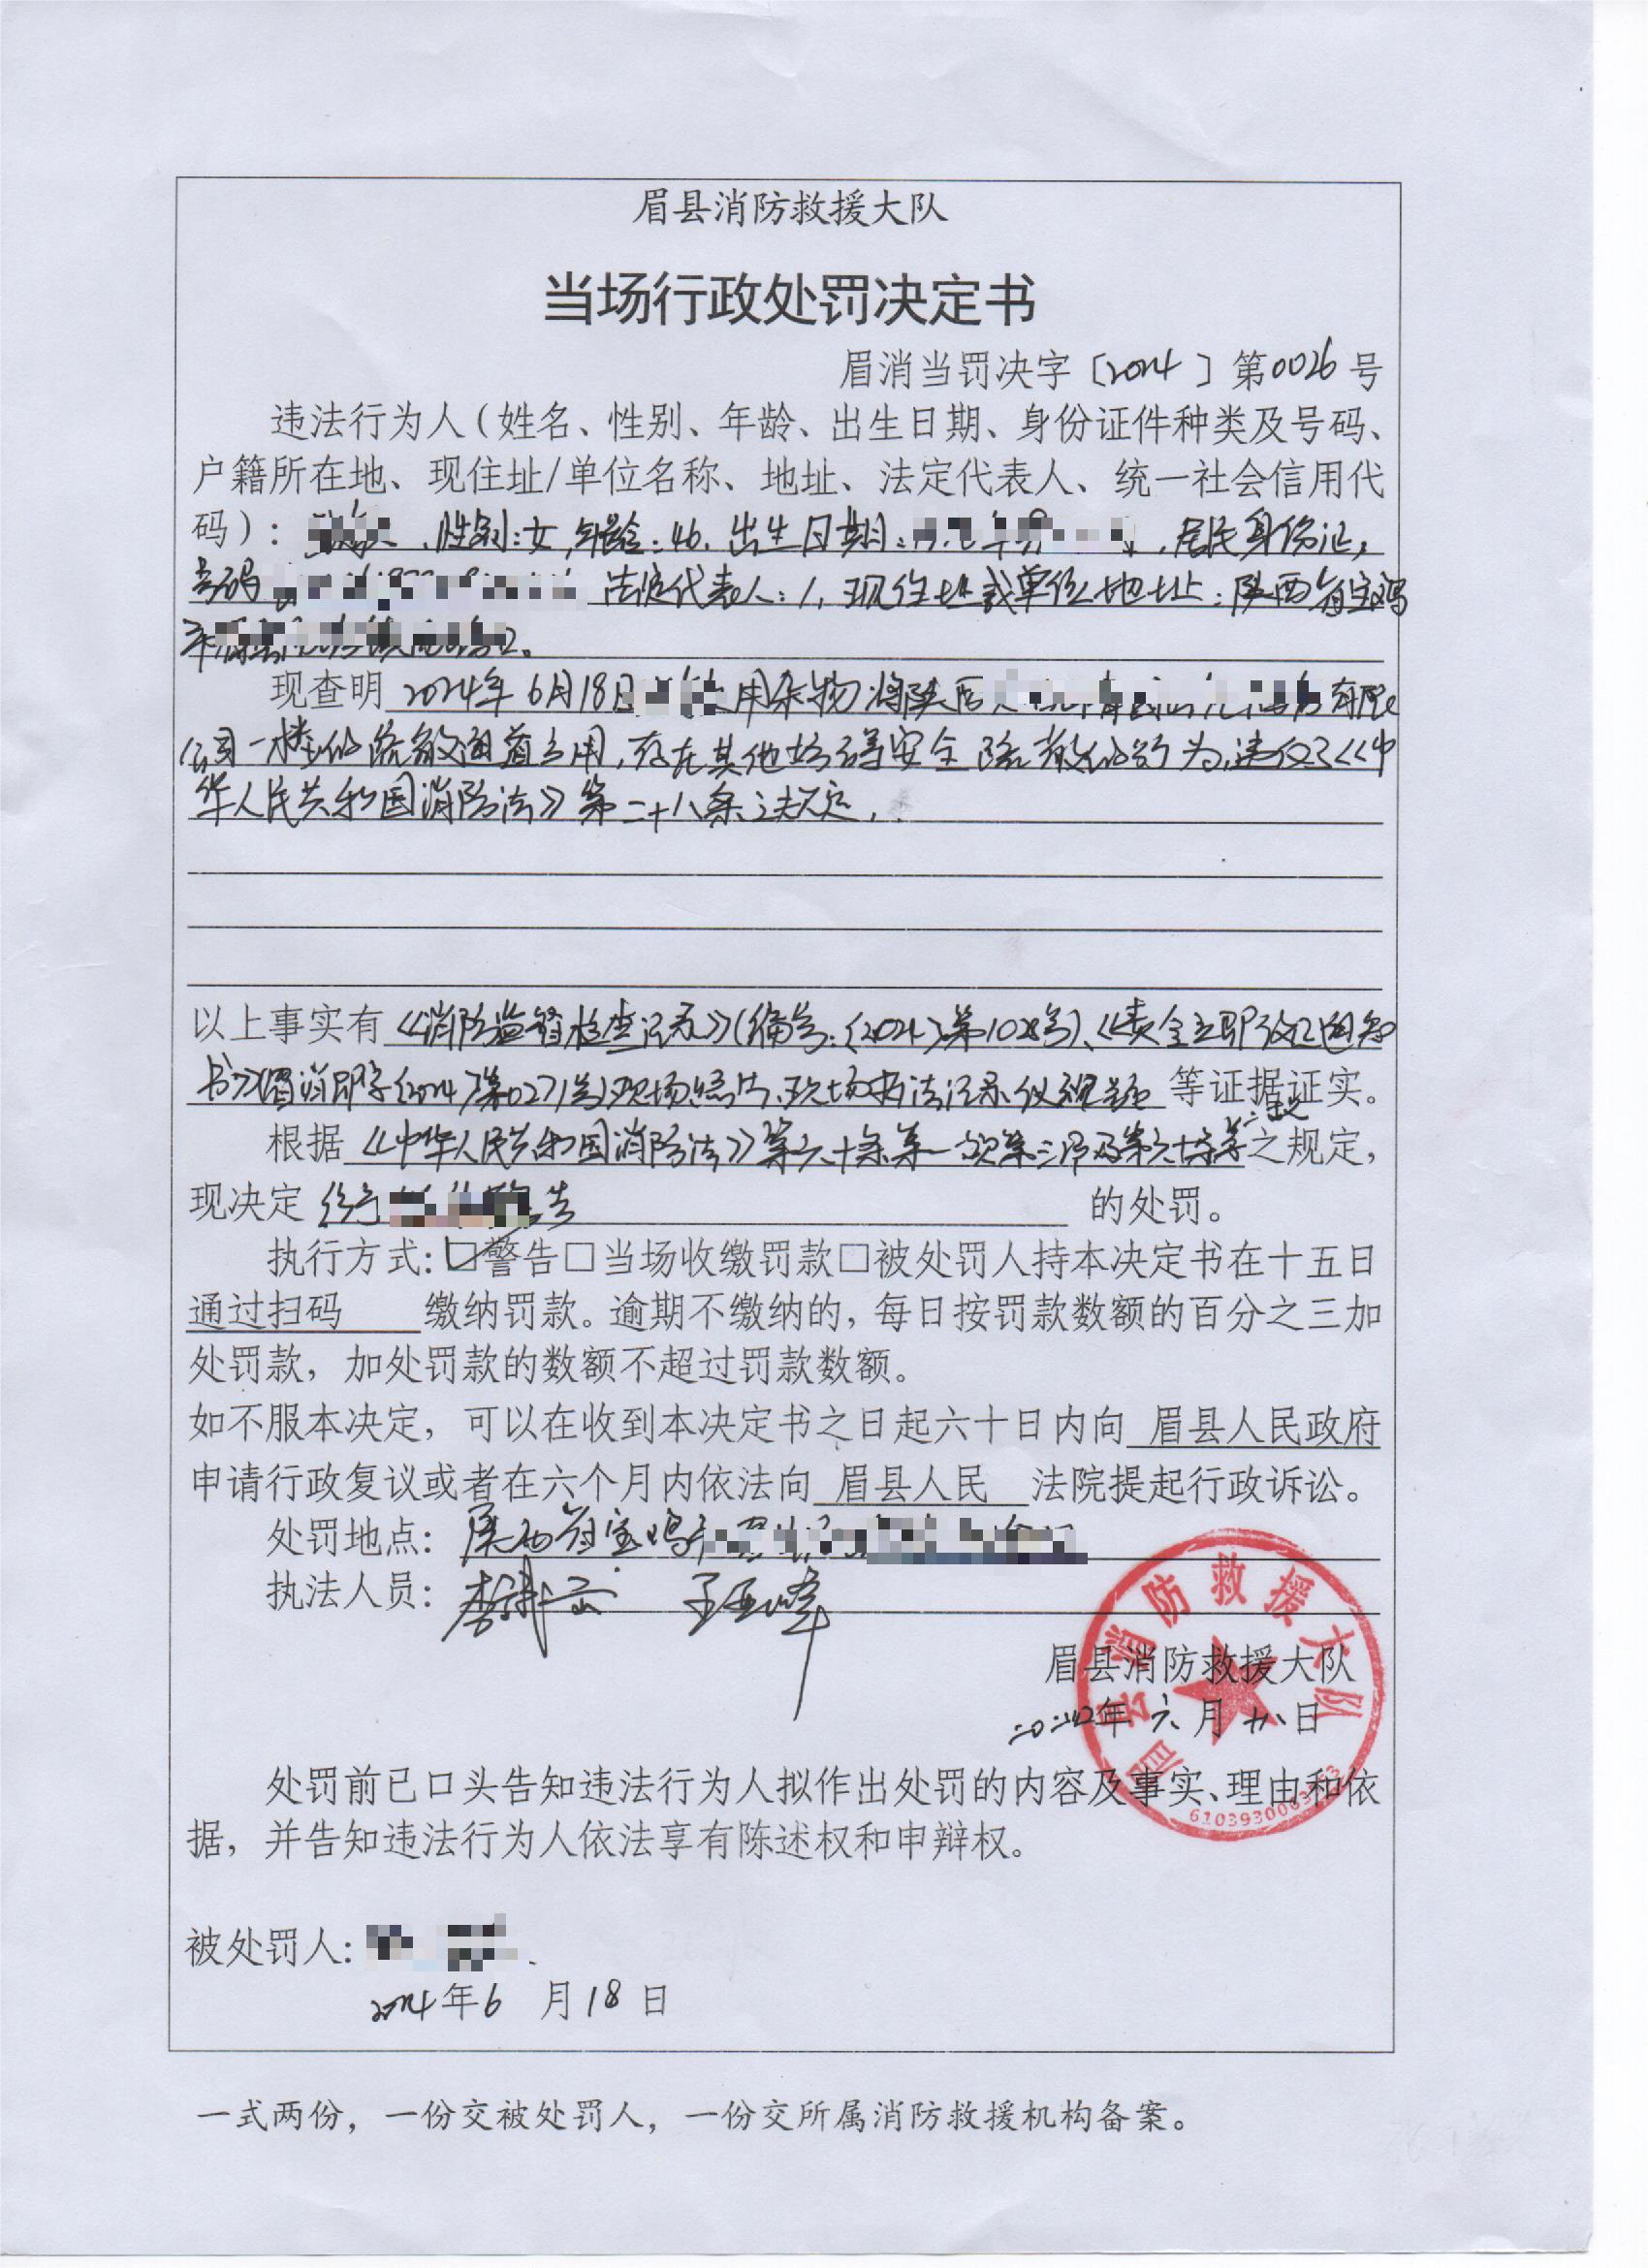 眉县消防救援大队
当场行政处罚决定书
眉消当罚决字〔2024〕第0026号
违法行为人(姓名、性别、年龄、出生日期、身份证件种类及号码、
户籍所在地、现住址/单位名称、地址、法定代表人、统一社会信用代
码):,性别:女,年龄:46,出生日期:,居民身份证,
号码 法定代表人:/,现住址或单位地址:陕西省宝鸡
市
现查明 2024年6月18日 用杂物将陕西 有限
公司一楼的疏散通道占用,存在其他妨碍安全疏散的行为,违反了《中
华人民共和国消防法》第二十八条之规定,
以上事实有《消防监督检查记录》(编号:〔2024〕第1028号)、《责令立即改正通知
书》(眉消即字〔2024〕第0271号)现场照片、现场执法记录仪视频 等证据证实。
根据《中华人民共和国消防法》第六十条第一款第三项及第六十条第二款之规定,
现决定 给予 警告 的处罚。
执行方式:☑警告□当场收缴罚款□被处罚人持本决定书在十五日
通过扫码 缴纳罚款。逾期不缴纳的,每日按罚款数额的百分之三加
处罚款,加处罚款的数额不超过罚款数额。
如不服本决定,可以在收到本决定书之日起六十日内向 眉县人民政府
申请行政复议或者在六个月内依法向 眉县人民 法院提起行政诉讼。
处罚地点:陕西省宝鸡市
执法人员: 王亚峰
眉县消防救援大队
二〇二四年六月十八日
眉县消防救援大队
处罚前已口头告知违法行为人拟作出处罚的内容及事实、理由和依
据,并告知违法行为人依法享有陈述权和申辩权。
被处罚人:
2024年6月18日
一式两份,一份交被处罚人,一份交所属消防救援机构备案。